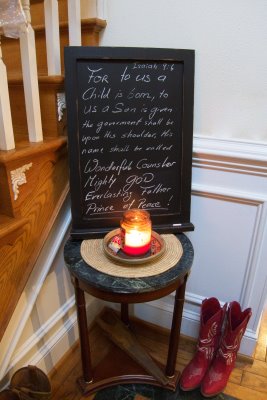 Isaiah 9:6
For to us a
Child is born, to
us a Son is given
the government shall be
upon this shoulder, His
name shall be called
Wonderful Counsler
Mighty GOD
Everlasting Father
Prince of Peace!